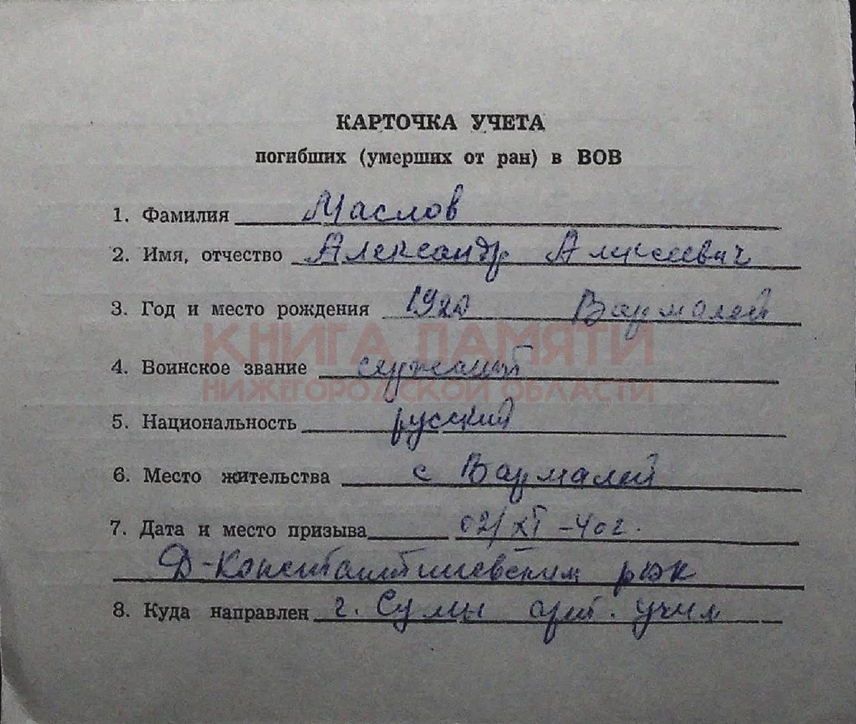 КАРТОЧКА УЧЕТА
погибших (умерших от ран) в ВОВ
1. Фамилия Маслов
2. Имя, отчество Александр Алексеевич
3. Год и место рождения 1920 Вармалей
КНИГА ПАМЯТИ
4. Воинское звание
НИЖЕГОРОДСКОЙ ОБЛАСТИ
5. Национальность русский
6. Место жительства с Вармалей
7. Дата и место призыва 02/XI-40г.
Д-Константиновским рвк
8. Куда направлен г. Сумы арт. учил